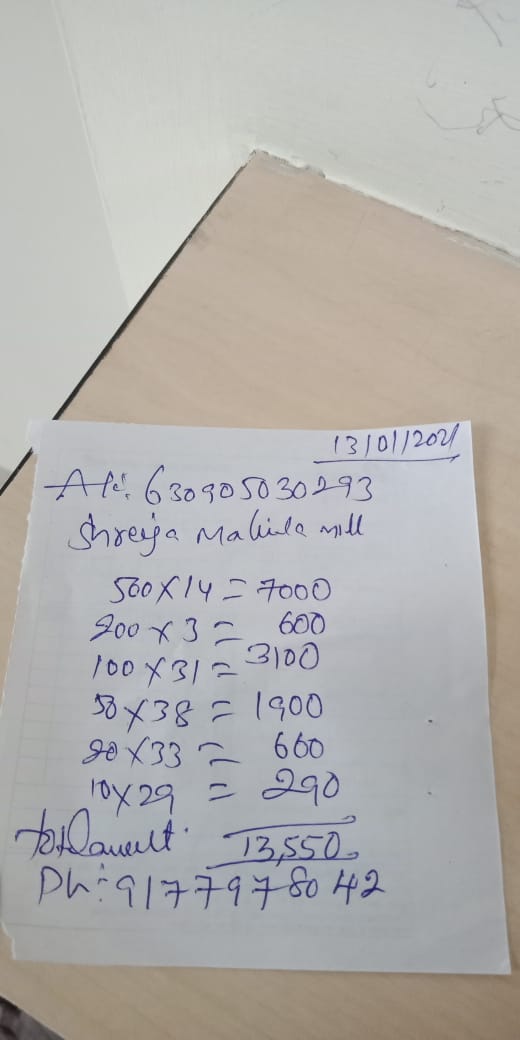 13/01/2021
A/c: 630905030293
Shreeja Mahila mill
500X14 = 7000
200 X 3 = 600
100 X 31 = 3100
50 X 38 = 1900
20 X 33 = 660
10X29 = 290
13,550
Ph: 9177978042